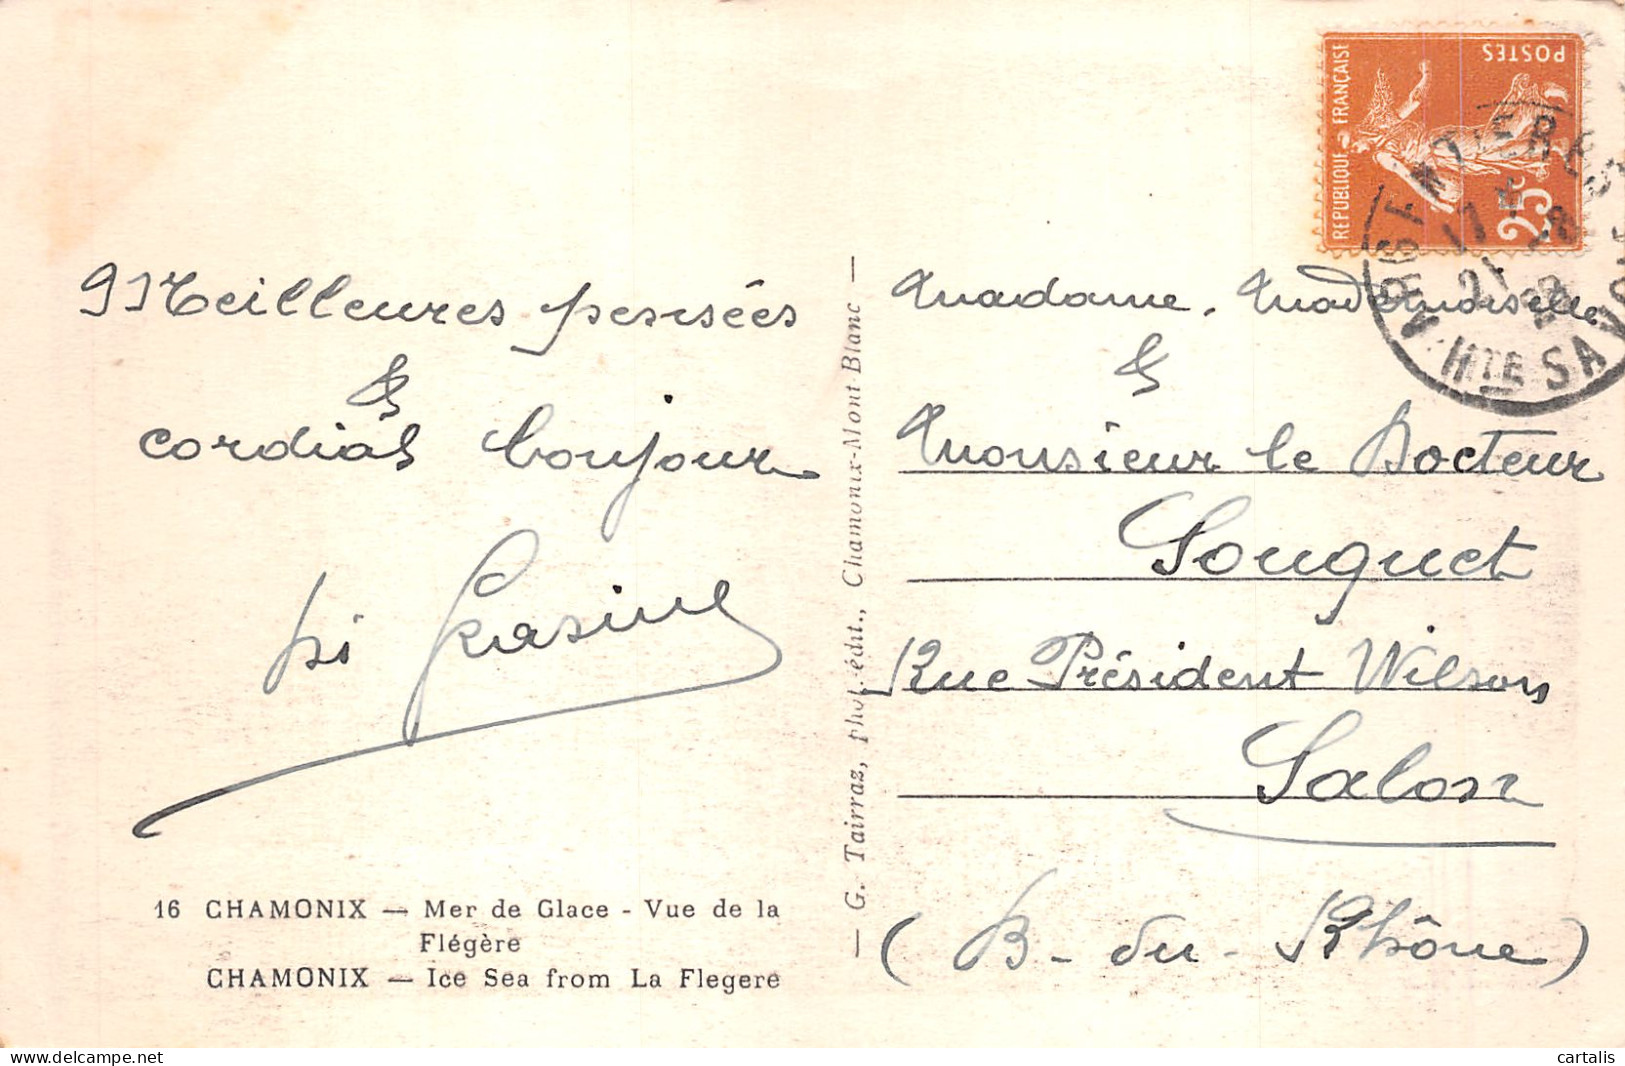 Meilleures pensées
&
cordial bonjour
16 CHAMONIX — Mer de Glace - Vue de la
Flégère
CHAMONIX — Ice Sea from La Flegere
— G. Tairraz, phot. édit., Chamonix-Mont-Blanc —
REPUBLIQUE FRANÇAISE
POSTES
25c
HTE SAVOIE
Madame, Mademoiselle
&
Monsieur le Docteur
Souquet
Rue Président Wilson
Salon
(B-du-Rhône)
delcampe.net
cartalis